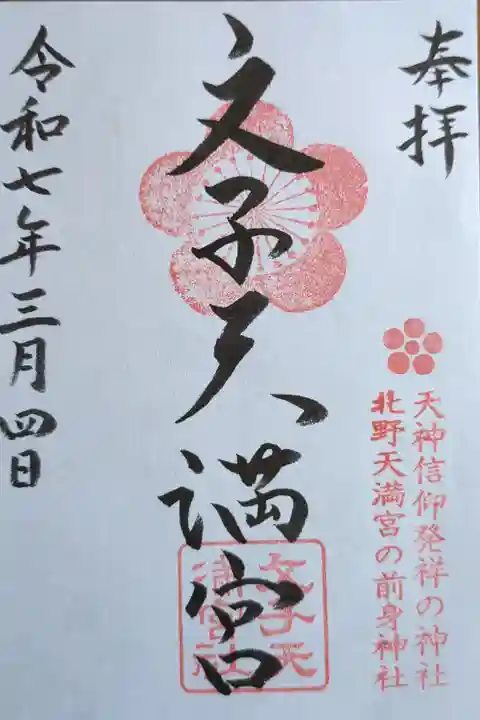 奉拝
天神信仰発祥の神社
北野天満宮の前身神社
文子天満宮
令和七年三月四日